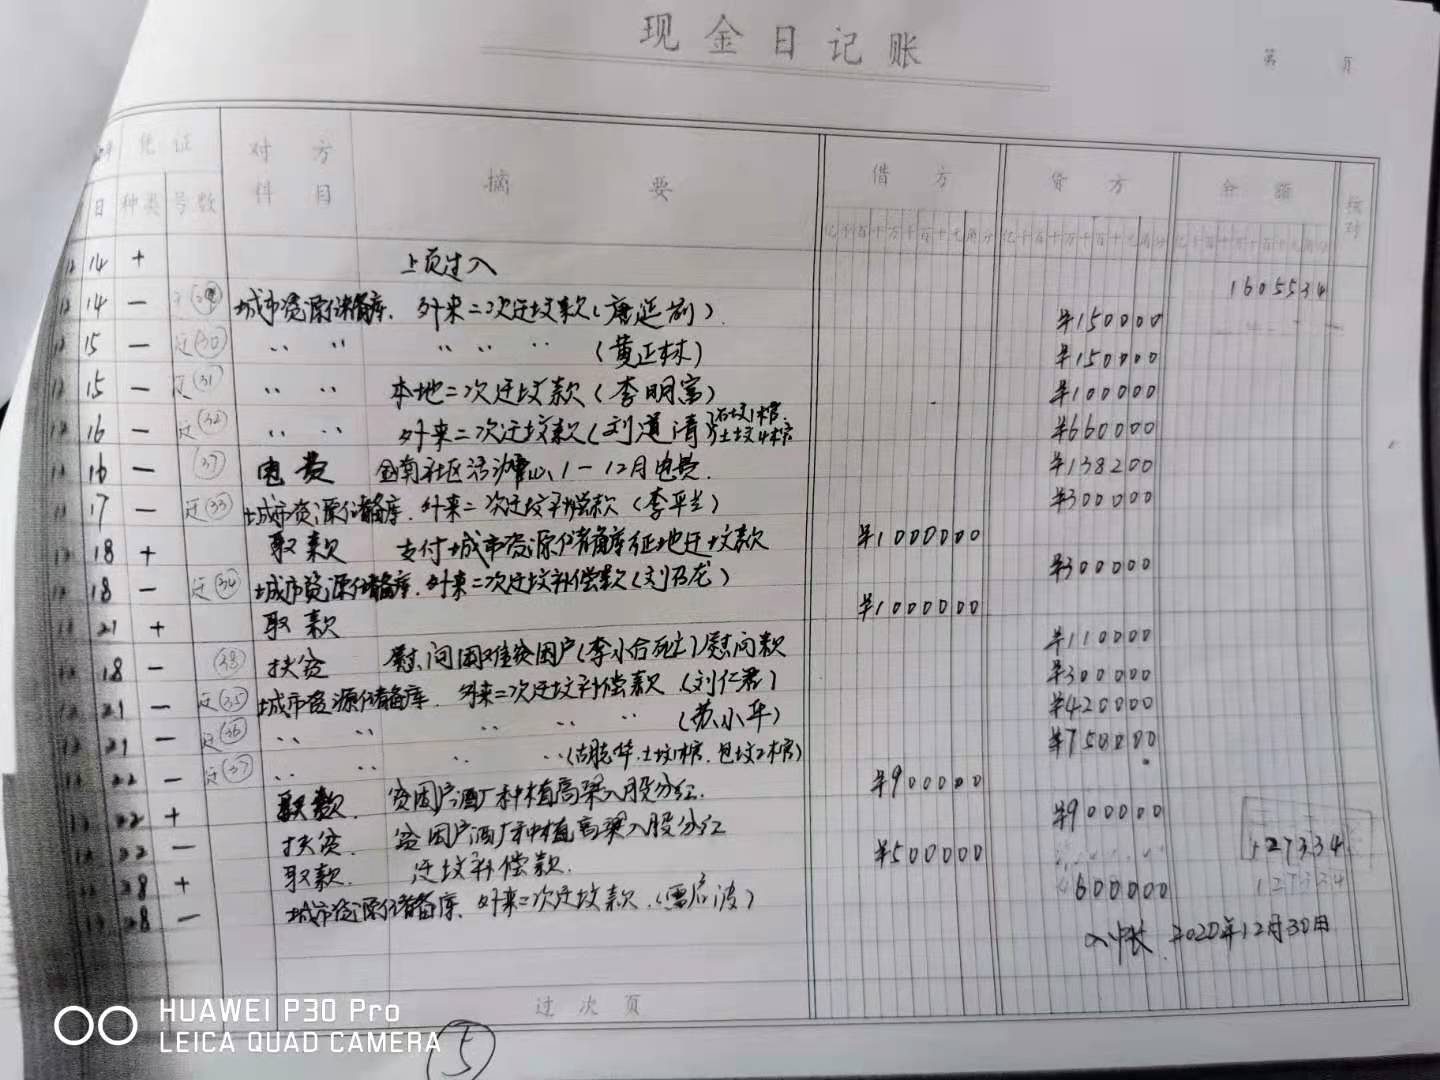 现金日记账
第 页
年 凭证 对方科目 摘要 借方 贷方 余额 核对
日 种类 号数 亿千百十万千百十元角分 亿千百十万千百十元角分 亿千百十万千百十元角分
12 14 + 上页过入 1605534
12 14 — 城市资源储备库. 外来二次迁坟款(唐延刚). ¥150000
12 15 — 迁(30) 〃 〃 〃 〃 〃 (黄正林) ¥150000
12 15 — 迁(31) 〃 〃 本地二次迁坟款(李明富) ¥100000
12 16 — 迁(32) 〃 〃 外来二次迁坟款(刘道清 石坟1棺. 土坟4棺 ¥660000
12 16 — (37) 电费 金南社区 1—12月电费. ¥138200
12 17 — 迁(33) 城市资源储备库. 外来二次迁坟补偿款(李平兰) ¥300000
12 18 + 取款 支付城市资源储备库征地迁坟款 ¥1000000
12 18 — 迁(34) 城市资源储备库. 外来二次迁坟补偿款(刘乃龙) ¥300000
12 21 + 取款 ¥1000000
12 18 — (38) 扶贫 慰问困难贫困户(李小合死亡)慰问款 ¥110000
12 21 — 迁(35) 城市资源储备库. 外来二次迁坟补偿款(刘仁君) ¥300000
12 21 — 迁(36) 〃 〃 〃 〃 〃 (苏小华) ¥420000
12 22 — 迁(37) 〃 〃 〃 〃 (胡 华.土坟1棺.包坟2棺) ¥750000
12 22 + 取款. 贫困户酒厂种植高粱入股分红. ¥900000
12 22 — 扶贫. 贫困户酒厂种植高粱入股分红 ¥900000
12 28 + 取款. 迁坟补偿款. ¥500000 127334
12 28 — 城市资源储备库. 外来二次迁坟款.(雷 波) 600000 127334
入账 2020年12月30日
过次页
5
HUAWEI P30 Pro
LEICA QUAD CAMERA